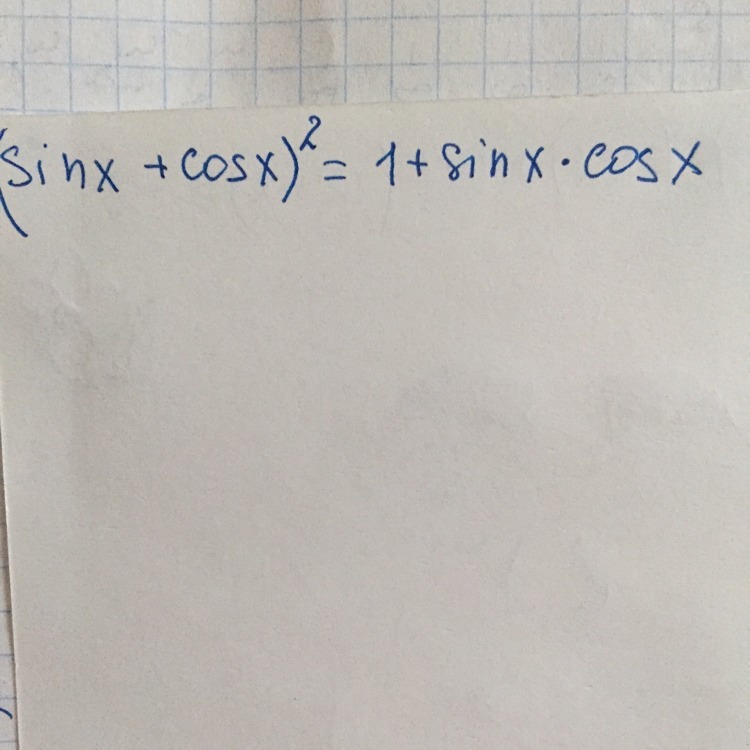 (sinx + cosx)² = 1 + sinx · cosx